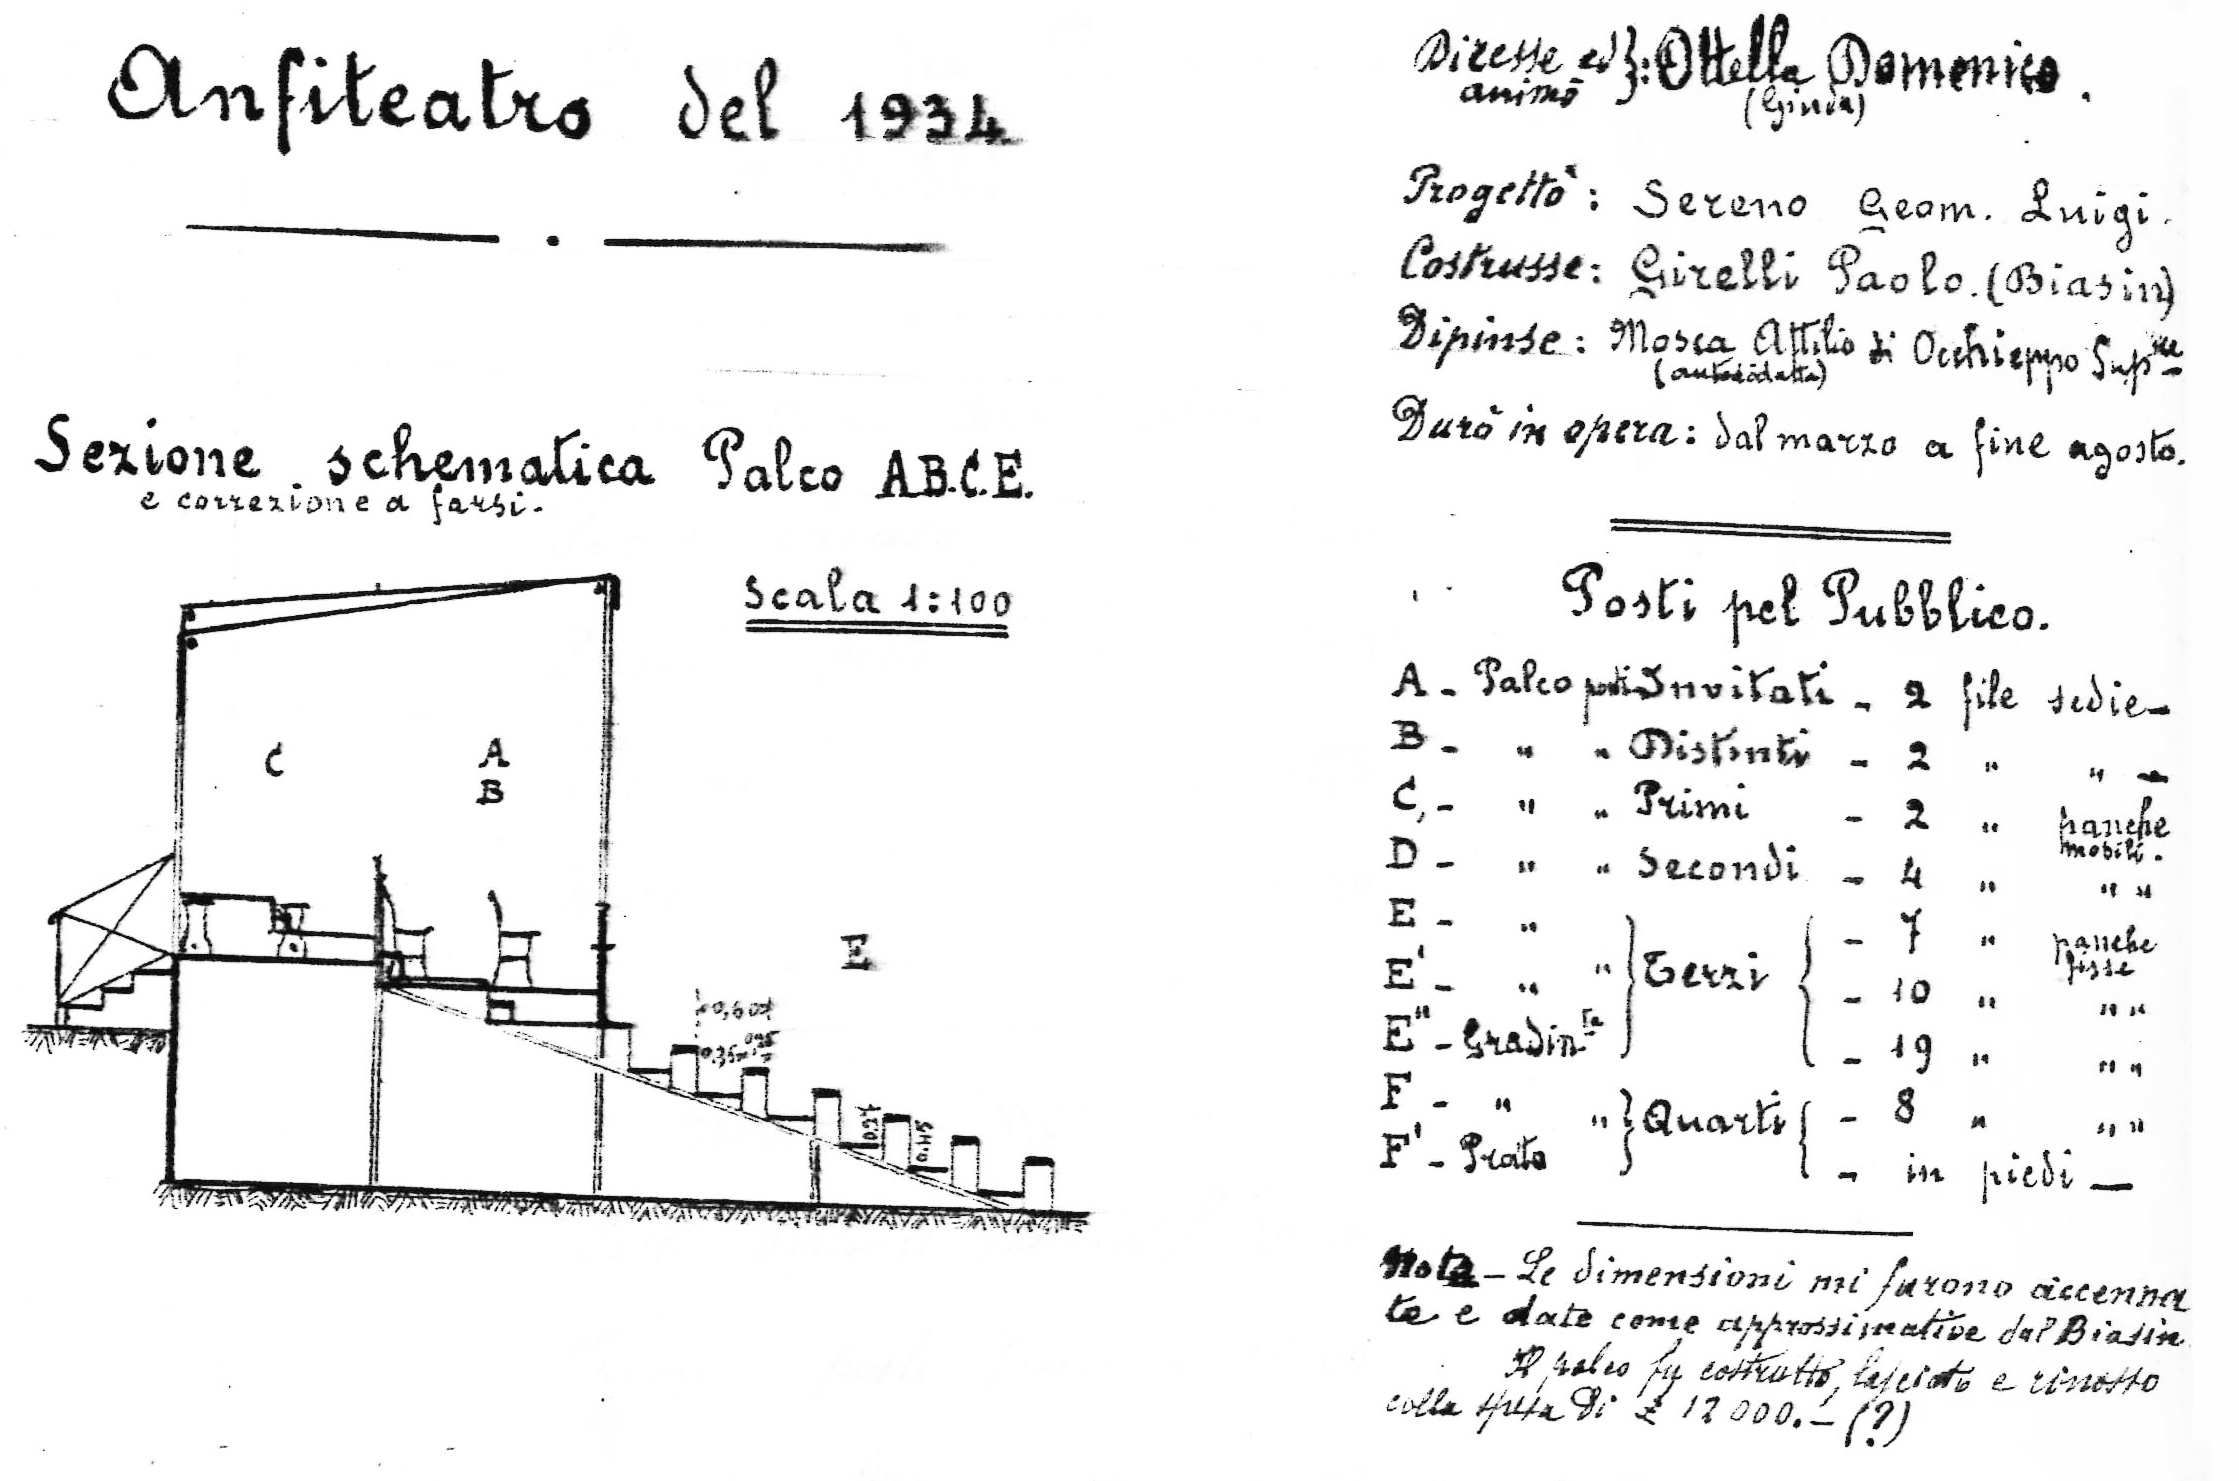 Anfiteatro del 1934
Sezione schematica Palco A.B.C.E.
e correzione a farsi.
Scala 1:100
C
A
B
E
0,60
0,35
0,45
Diresse ed animò }: Ottella Domenico.
Progettò: Sereno Geom. Luigi.
Costrusse: Girelli Paolo. (Biasin)
Dipinse: Mosca Attilio di Occhieppo Sup.re
(autodidatta)
Durò in opera: dal marzo a fine agosto.
Posti pel Pubblico.
A - Palco per Invitati - 2 file sedie -
B - " " Distinti - 2 " " -
C - " " Primi - 2 " panche mobili.
D - " " Secondi - 4 " " "
E - " - 7 " panche fisse
E' - " " } Terzi { - 10 " " "
E" - Gradin.ta - 19 " " "
F - " " } Quarti { - 8 " " "
F' - Prato - in piedi -
Nota - Le dimensioni mi furono accenna
te e date come approssimative dal Biasin
Il palco fu costrutto, lasciato e rimosso
colla spesa di £ 12000. - (?)